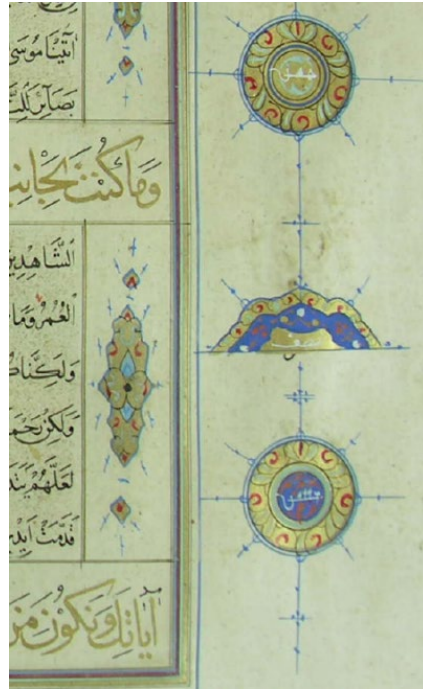 اٰتَيْنَا مُوسَى
بَصَآئِرَ لِلنَّ
وَمَا كُنْتَ بِجَانِبِ
الشَّاهِدِينَ
الْعُمُرُ وَمَا
وَلَكِنَّا
وَلَكِنْ رَحْمَ
لَعَلَّهُمْ يَتَذَ
قَدَّمَتْ اَيْدِي
آيَاتِكَ وَنَكُونَ مِنَ